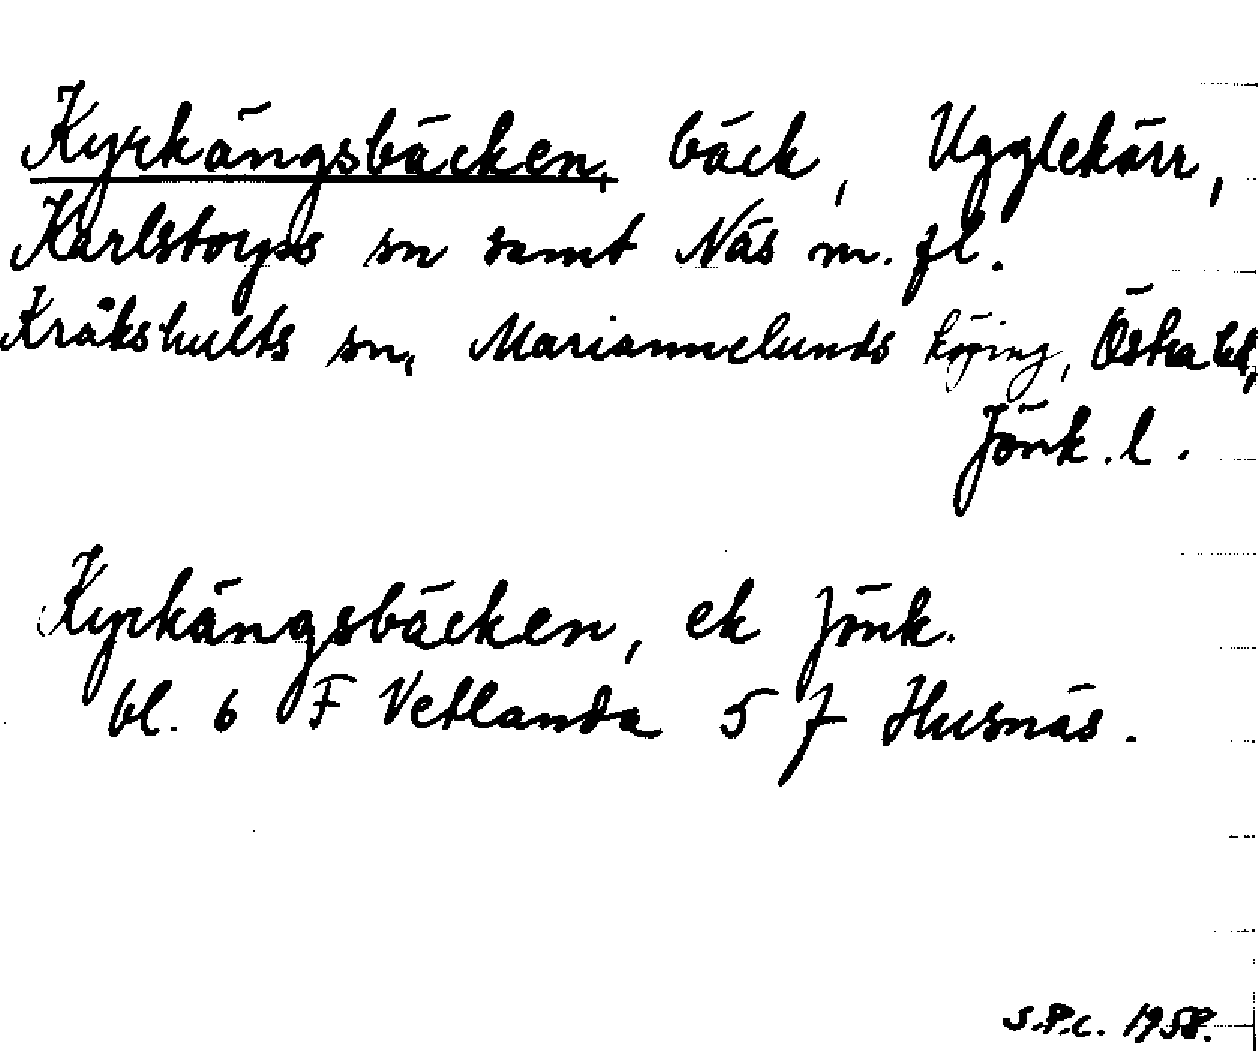 Kyrkängsbäcken, bäck, Ugglekärr,
Karlstorps sn samt Näs m. fl.
Kråkshults sn, Mariannelunds köping, Östra hd,
Jönk. l.
Kyrkängsbäcken, ek Jönk.
bl. 6 F Vetlanda 5 f Husnäs.
S.P.C. 1958.